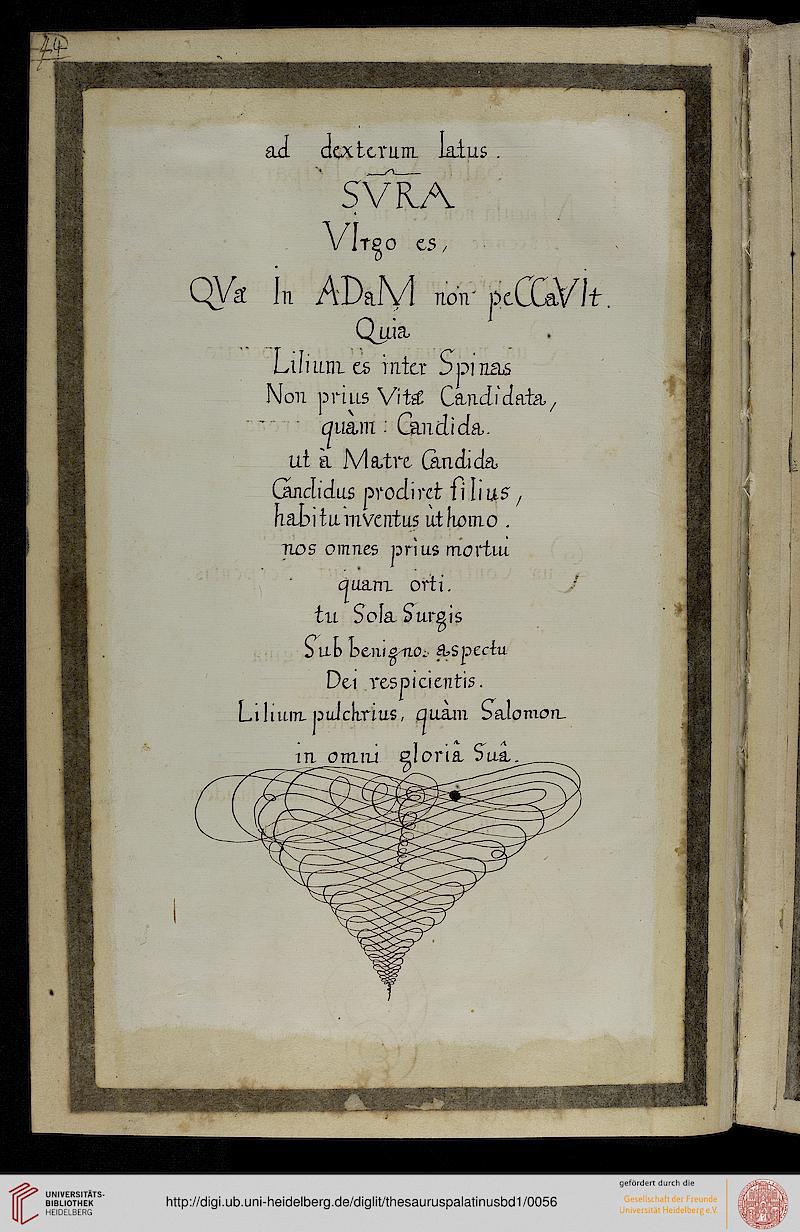 44
ad dexterum latus.
SVRA
VIrgo es,
QVæ In ADaM non peCCaVIt.
Quia
Lilium es inter Spinas
Non prius Vitæ Candidata,
quàm : Candida.
ut à Matre Candida
Candidus prodiret filius,
habitu inventus ùt homo.
nos omnes prius mortui
quam orti.
tu Sola Surgis
Sub benigno aspectu
Dei respicientis.
Lilium pulchrius, quàm Salomon
in omni gloriâ Suâ.
UNIVERSITÄTS-
BIBLIOTHEK
HEIDELBERG
http://digi.ub.uni-heidelberg.de/diglit/thesauruspalatinusbd1/0056
gefördert durch die
Gesellschaft der Freunde
Universität Heidelberg e.V.